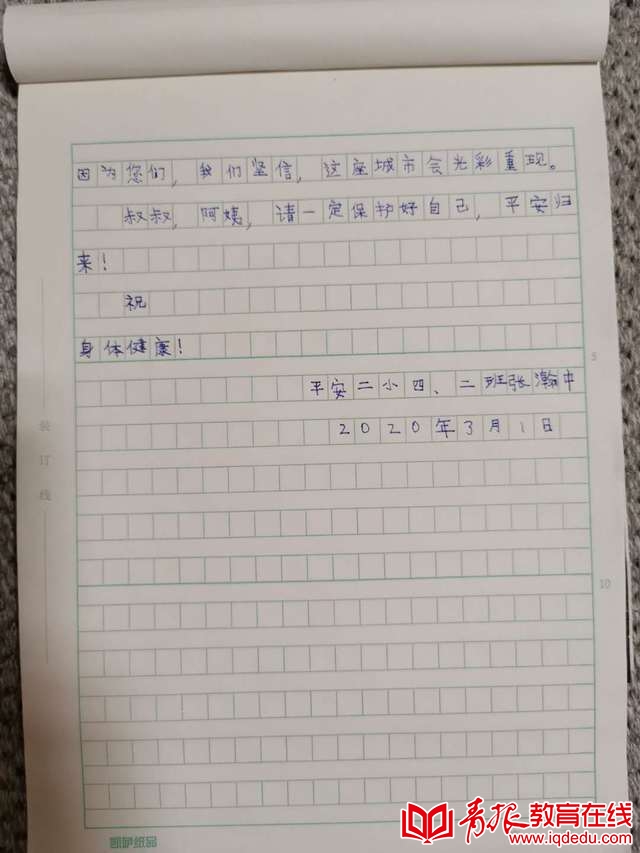 因为您们，我们坚信，这座城市会光彩重现。
叔叔，阿姨，请一定保护好自己，平安归
来！
祝
身体健康！
5
平安二小四、二班张瀚中
2020年3月1日
装
订
线
10
青报教育在线
www.iqdedu.com